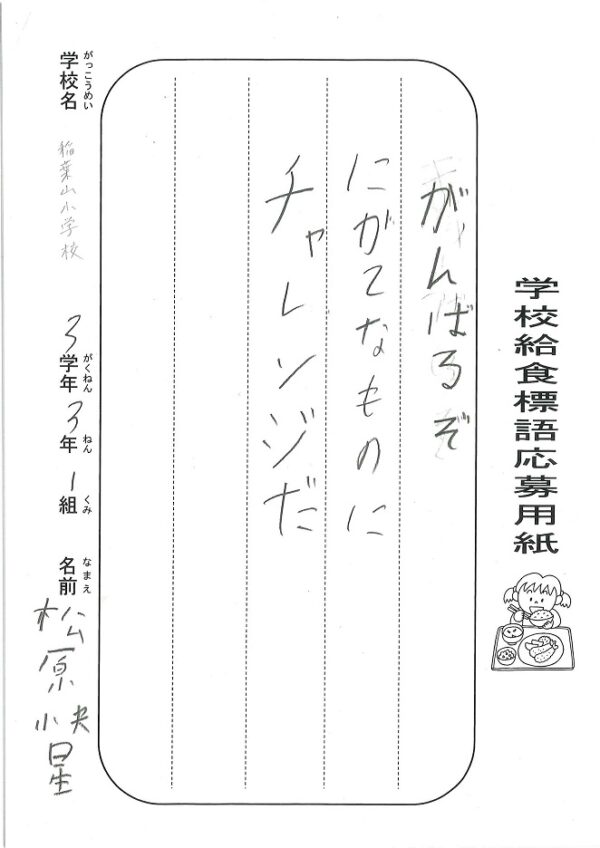 学校給食標語応募用紙
がんばるぞ
にがてなものに
チャレンジだ
がっこうめい
学校名 稲葉山小学校
がくねん ねん くみ
3学年 3年 1組
なまえ
名前 松原
星